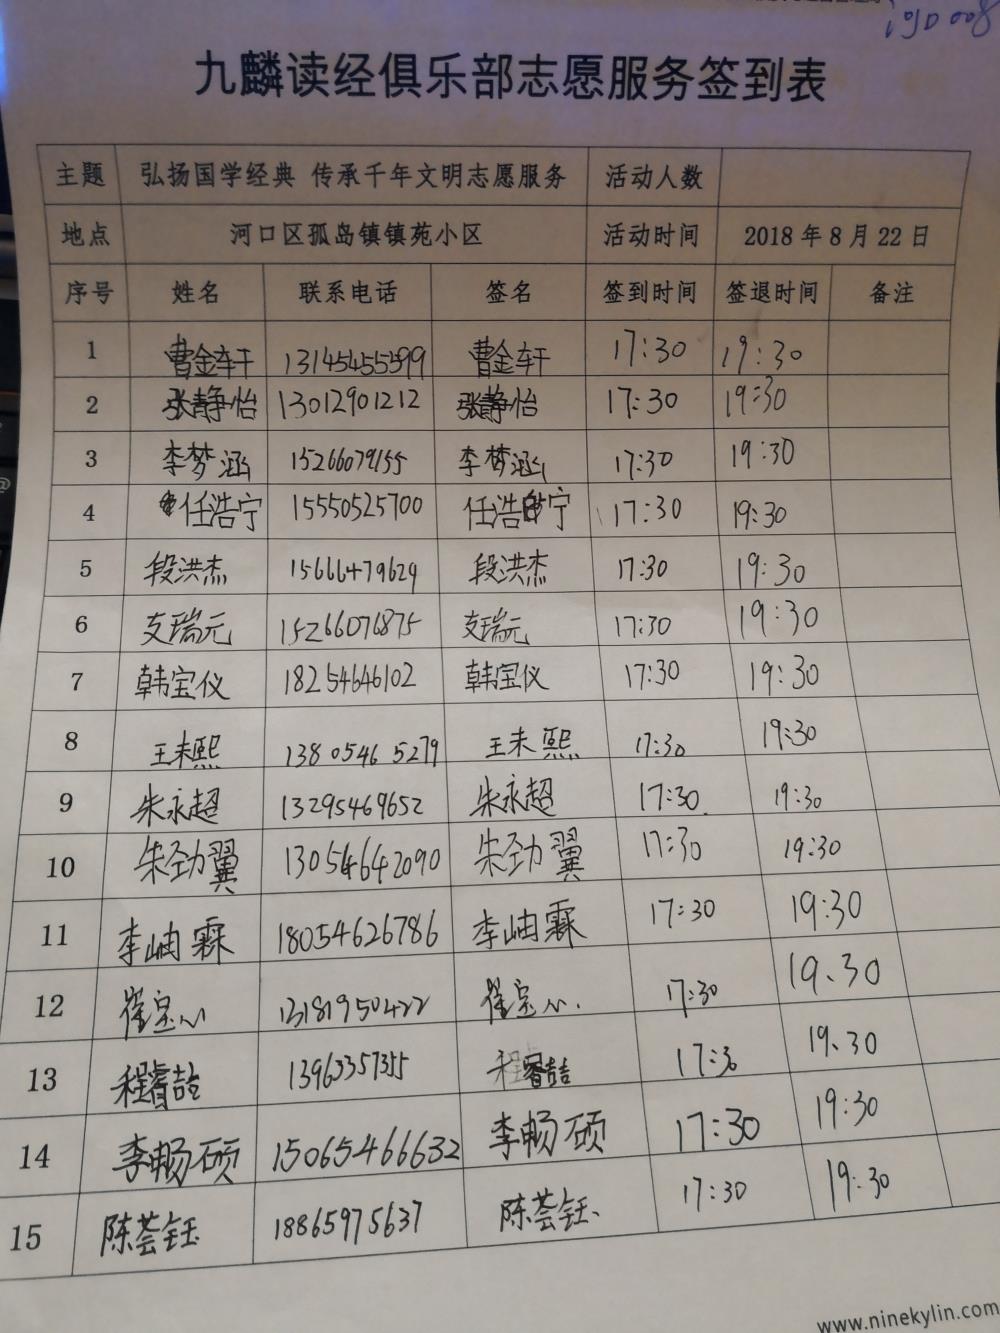 九麟读经俱乐部志愿服务签到表
主题 弘扬国学经典 传承千年文明志愿服务 活动人数
地点 河口区孤岛镇镇苑小区 活动时间 2018年8月22日
序号 姓名 联系电话 签名 签到时间 签退时间 备注
1 曹金轩 13145455599 曹金轩 17:30 19:30
2 张静怡 13012901212 张静怡 17:30 19:30
3 李梦涵 15266079155 李梦涵 17:30 19:30
4 任浩宁 15550525700 任浩宁 17:30 19:30
5 段洪杰 15666479629 段洪杰 17:30 19:30
6 支瑞元 15266076875 支瑞元 17:30 19:30
7 韩宝仪 18254646102 韩宝仪 17:30 19:30
8 王未熙 13805465279 王未熙 17:30 19:30
9 朱永超 13295469652 朱永超 17:30 19:30
10 朱劲翼 13054642090 朱劲翼 17:30 19:30
11 李岫霖 18054626786 李岫霖 17:30 19:30
12 13181950422 17:30 19.30
13 程睿喆 13963357355 程睿喆 17:30 19.30
14 李畅硕 15065466632 李畅硕 17:30 19:30
15 陈荟钰 18865975637 陈荟钰 17:30 19:30
www.ninekylin.com